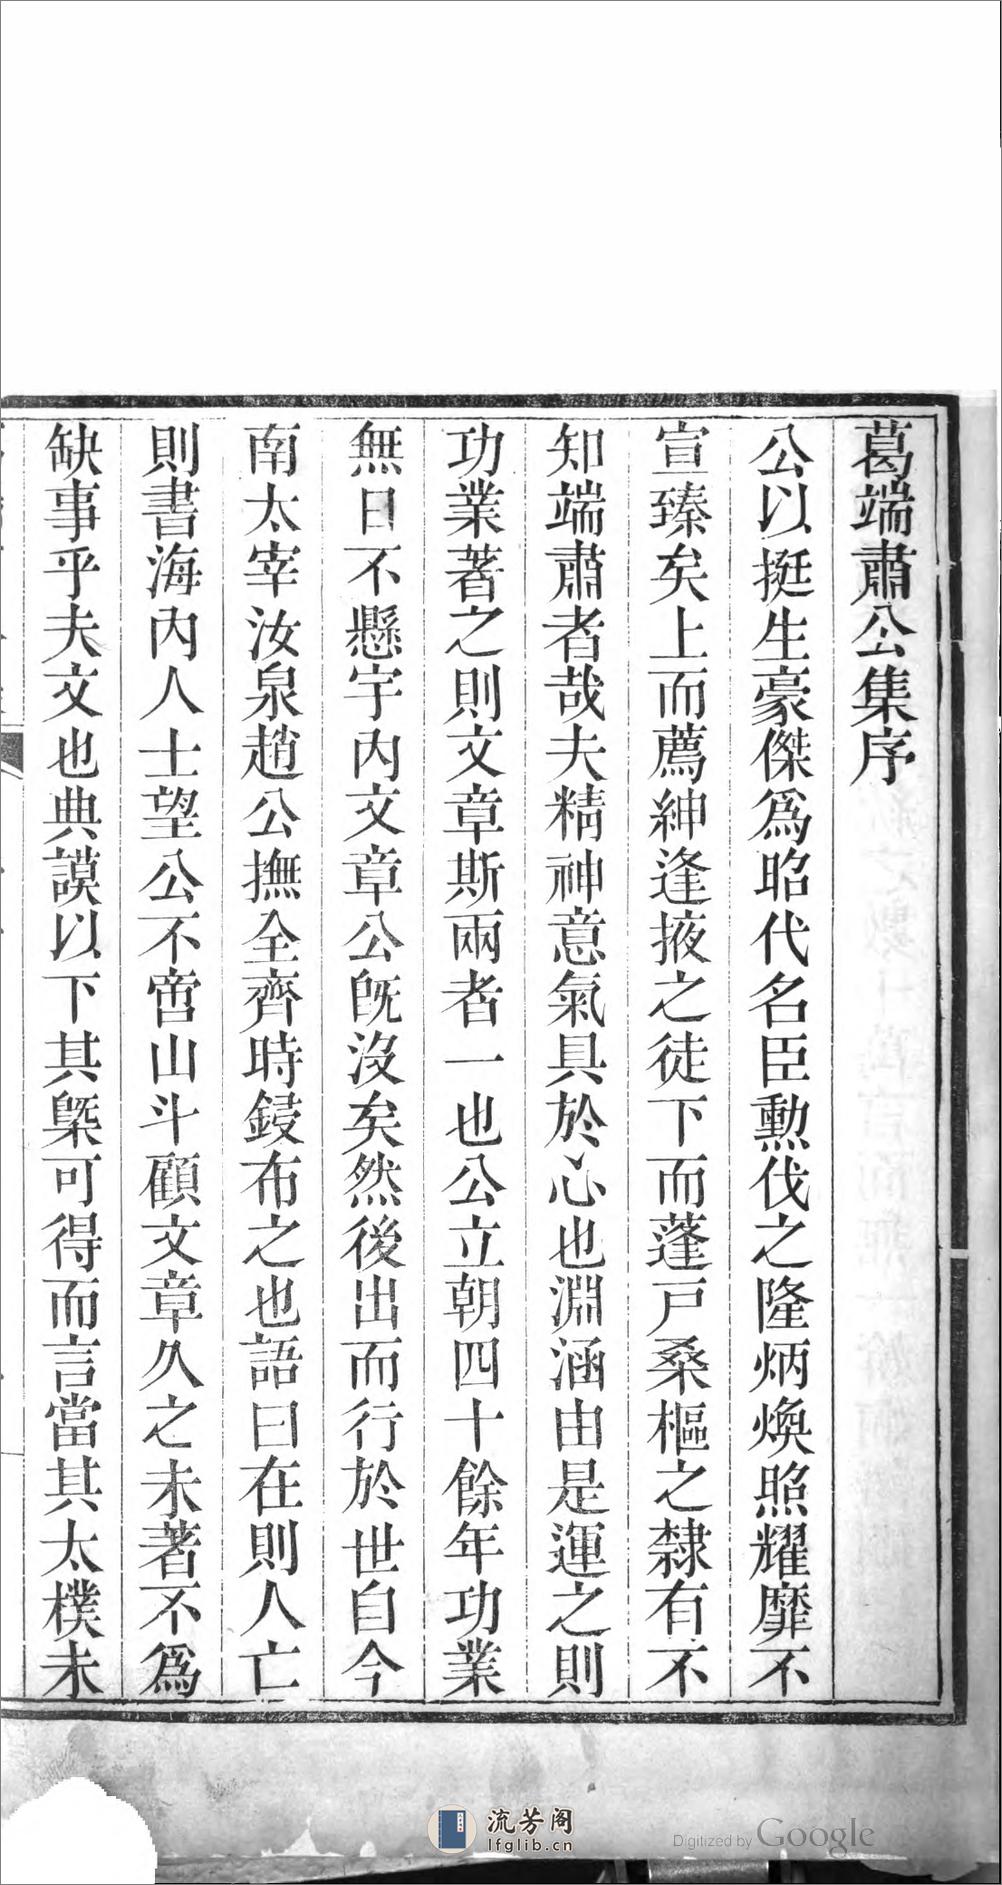 葛端肅公集序
公以挺生豪傑爲昭代名臣勲伐之隆炳煥照耀靡不
宣臻矣上而薦紳逢掖之徒下而蓬戸桑樞之隸有不
知端肅者哉夫精神意氣具於心也淵涵由是運之則
功業著之則文章斯兩者一也公立朝四十餘年功業
無日不懸宇内文章公旣沒矣然後出而行於世自今
南太宰汝泉趙公撫全齊時鋟布之也語曰在則人亡
則書海内人士望公不啻山斗顧文章久之未著不爲
缺事乎夫文也典謨以下其槩可得而言當其太樸未
流芳阁
lfglib.cn
Digitized by Google